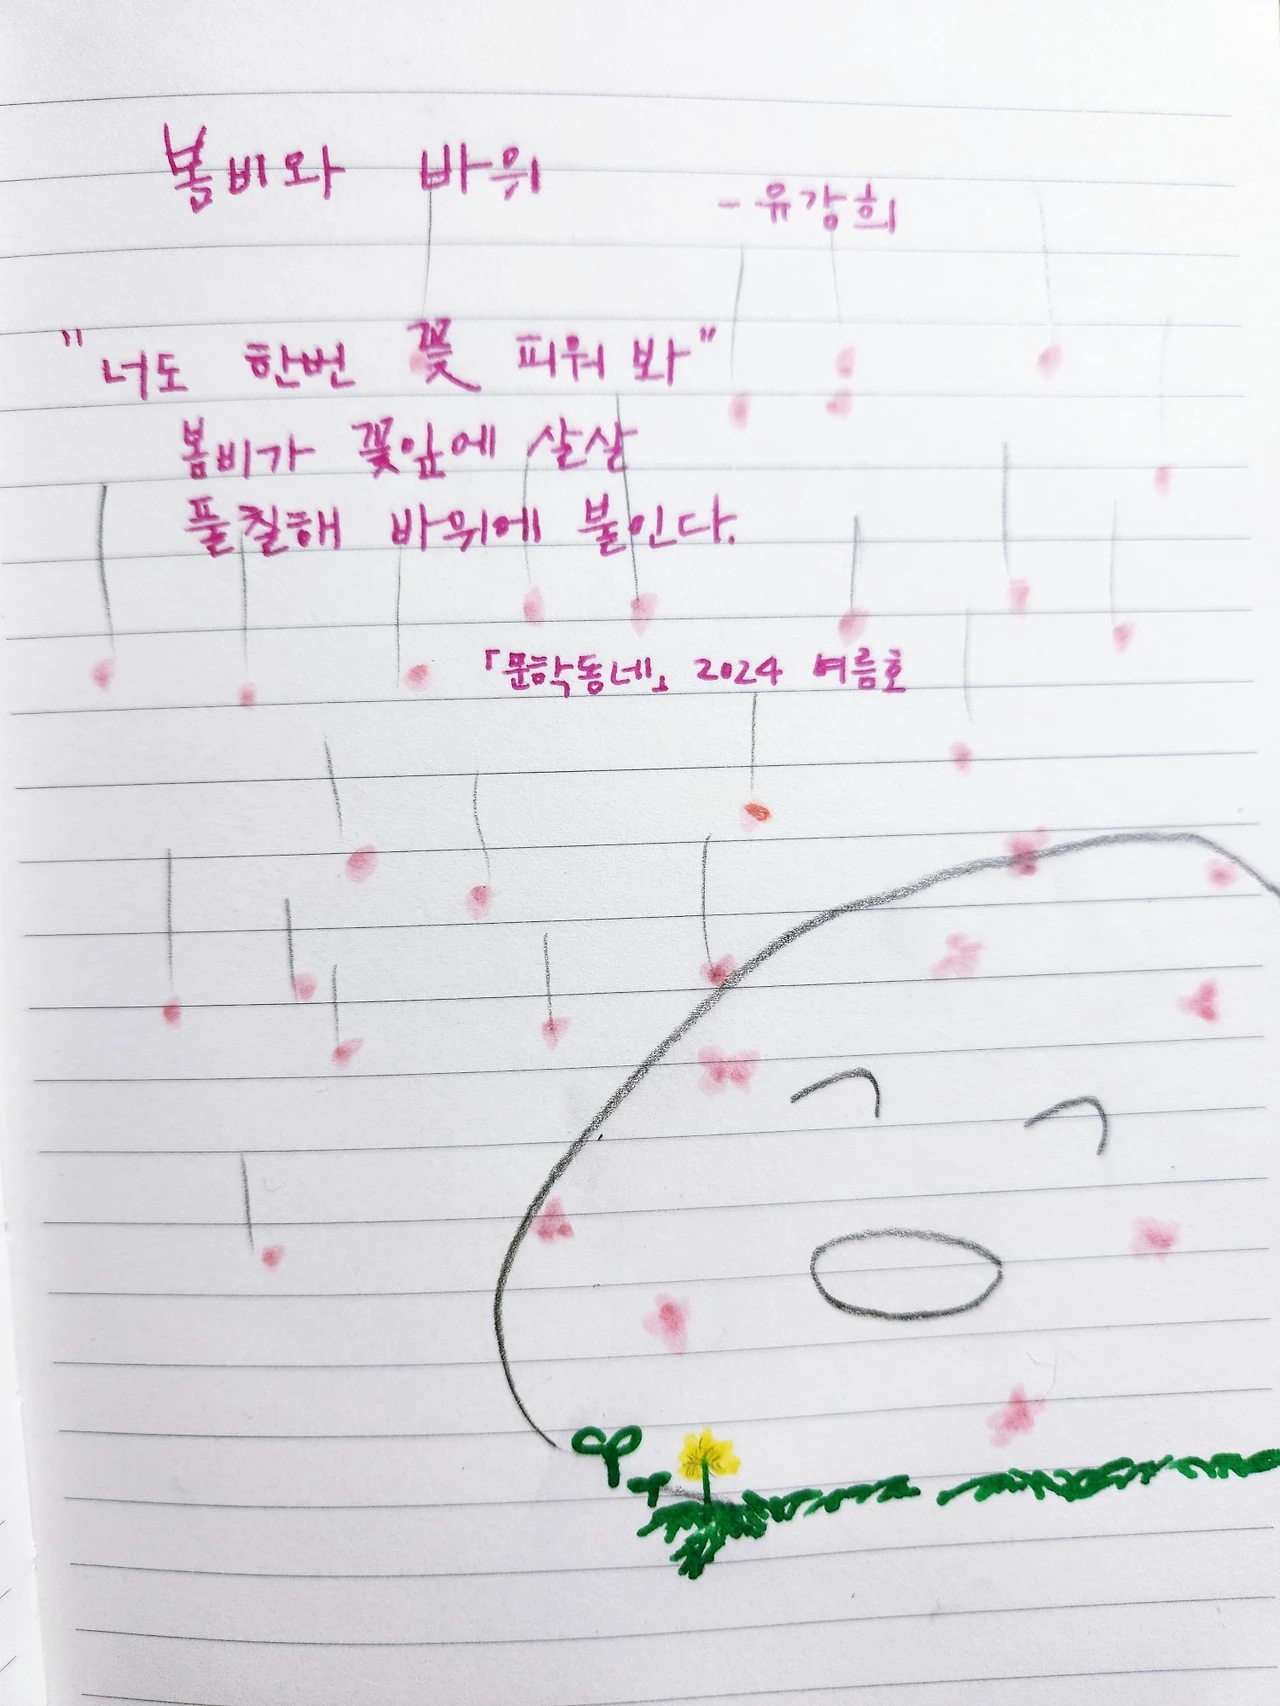 봄비와 바위
- 유강희
"너도 한번 꽃 피워 봐"
봄비가 꽃잎에 살살
풀칠해 바위에 붙인다.
「문학동네」 2024 여름호